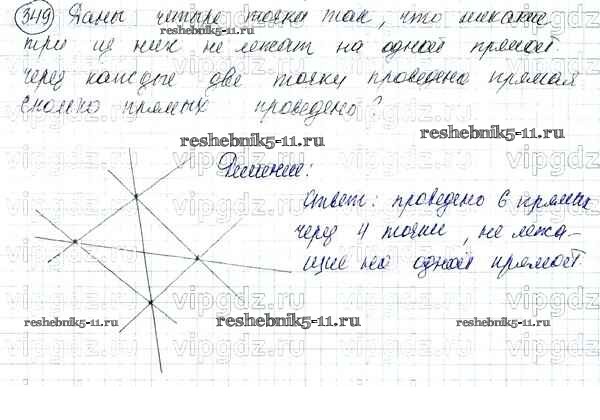 349 Даны четыре точки так, что никакие
три из них не лежат на одной прямой
через каждые две точки проведена прямая
сколько прямых проведено?
reshebnik5-11.ru
reshebnik5-11.ru
reshebnik5-11.ru
Решение:
Ответ: проведено 6 прямых
через 4 точки, не лежа-
щие на одной прямой
reshebnik5-11.ru
reshebnik5-11.ru
reshebnik5-11.ru
vipgdz.ru